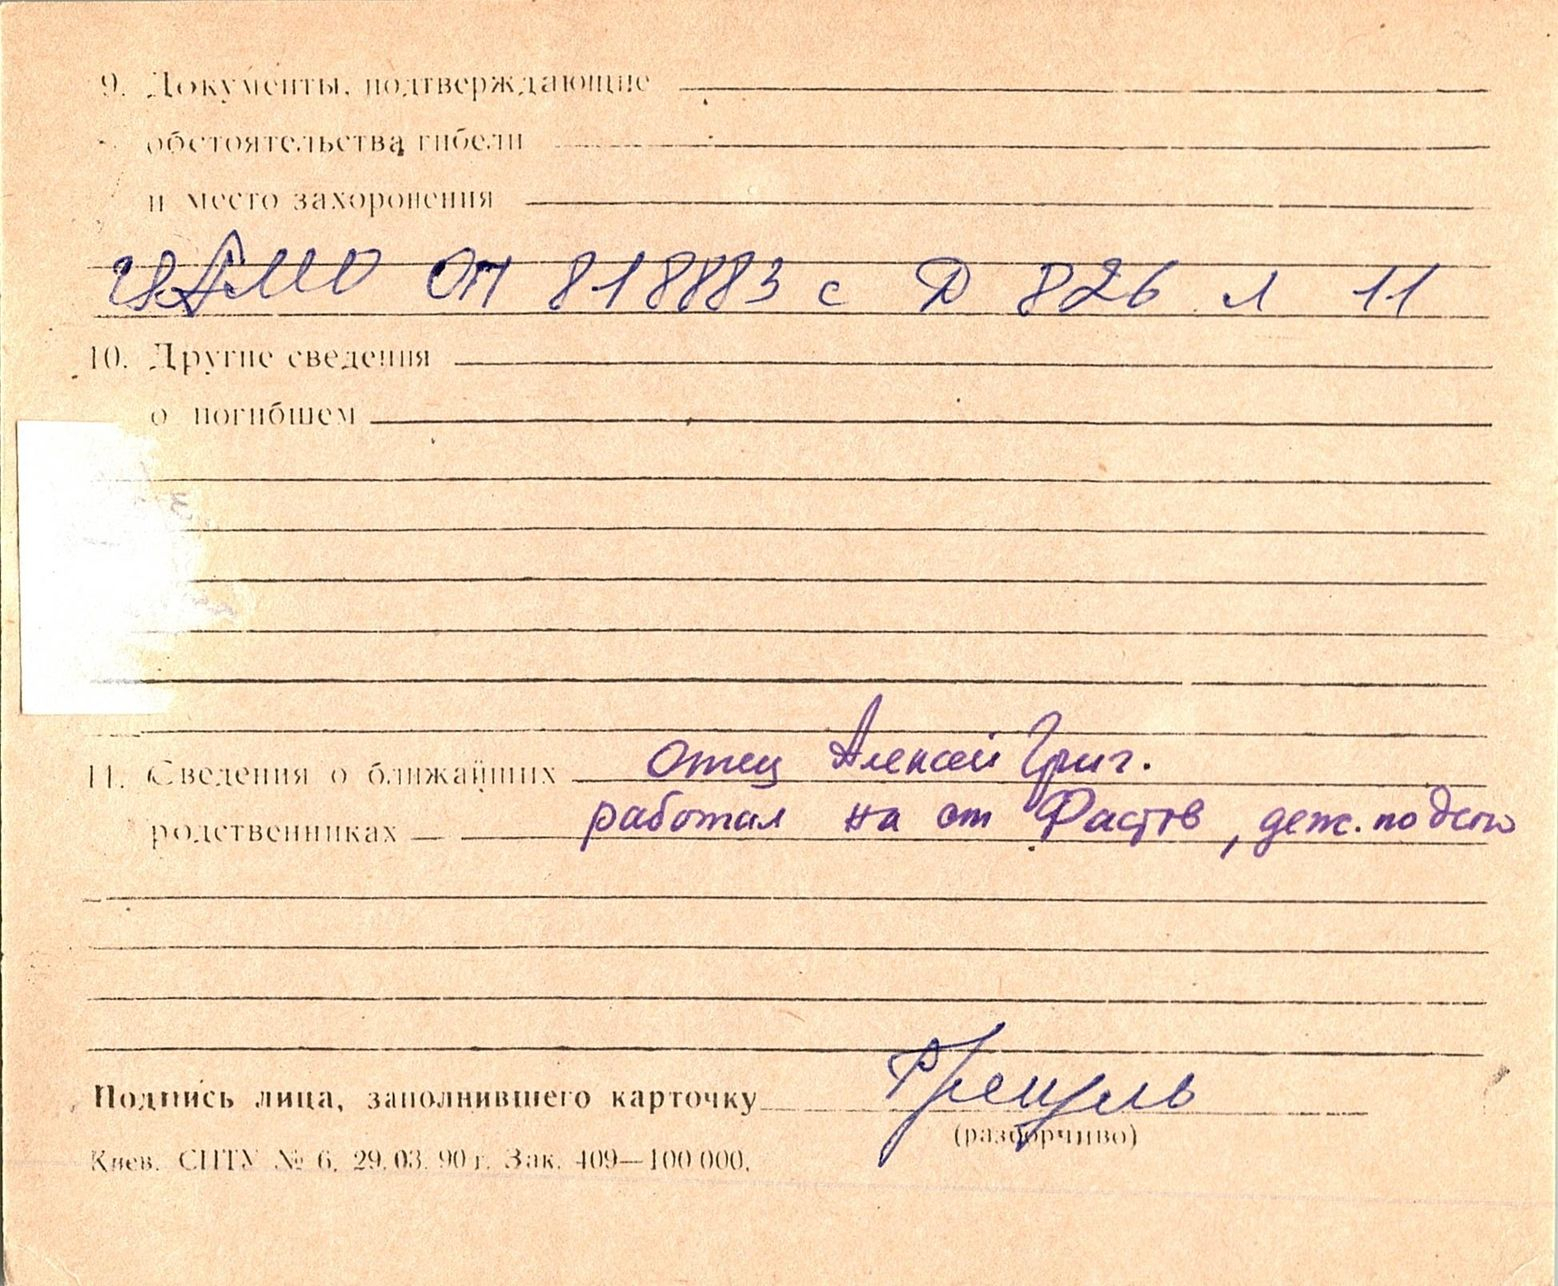 9. Документы, подтверждающие
обстоятельства гибели
и место захоронения
ЦАМО ОП 818883 с Д 826 л 11
10. Другие сведения
о погибшем
11. Сведения о ближайших отец Алексей Григ.
родственниках работал на ст Фастов, деж. по депо
Подпись лица, заполнившего карточку
(разборчиво)
Киев. СПТУ № 6. 29.03.90 г. Зак. 409—100 000.